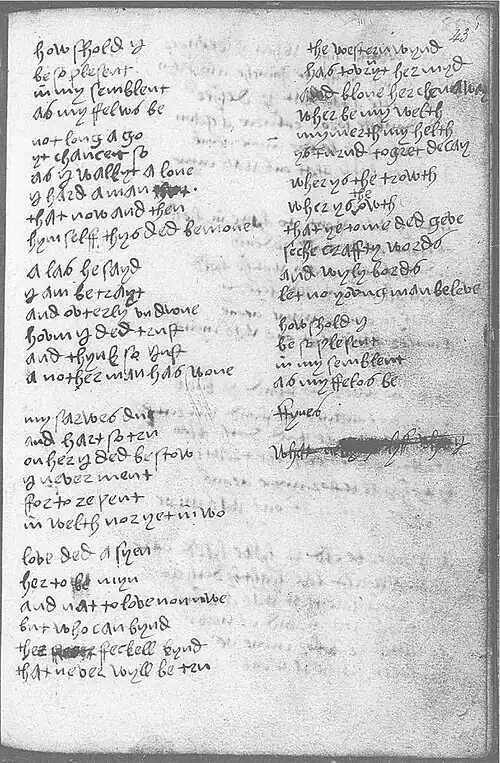 how shold y
be so plesent
in my semblent
as my felws be
not long a go
yt chancet so
as y walkyt a lone
y hard a man
that now and then
hymselff thys ded bemone
a las he sayd
y am be trayt
and otterly ondone
hoom y ded trust
and thynk so just
a nother man has wone
my sarwes du
and hart so tru
on her y ded bestow
y never ment
for to repent
in welth nor yet in wo
love ded asyen
her to be myn
and nat to love non nwe
but who can bynd
ther feckell kynd
that never wyll be tru
43
the western wynd
has tornyt her mynd
and blone her chen away
wher be my welth
my merth my helth
ys turnd to gret decay
wher ys the trowth
wher ys the owth
that ye to me ded geve
seche crafty words
and wyly bords
let no yovng man beleve
how shold y
be so plesent
in my semblent
as my felos be
ffynes
what